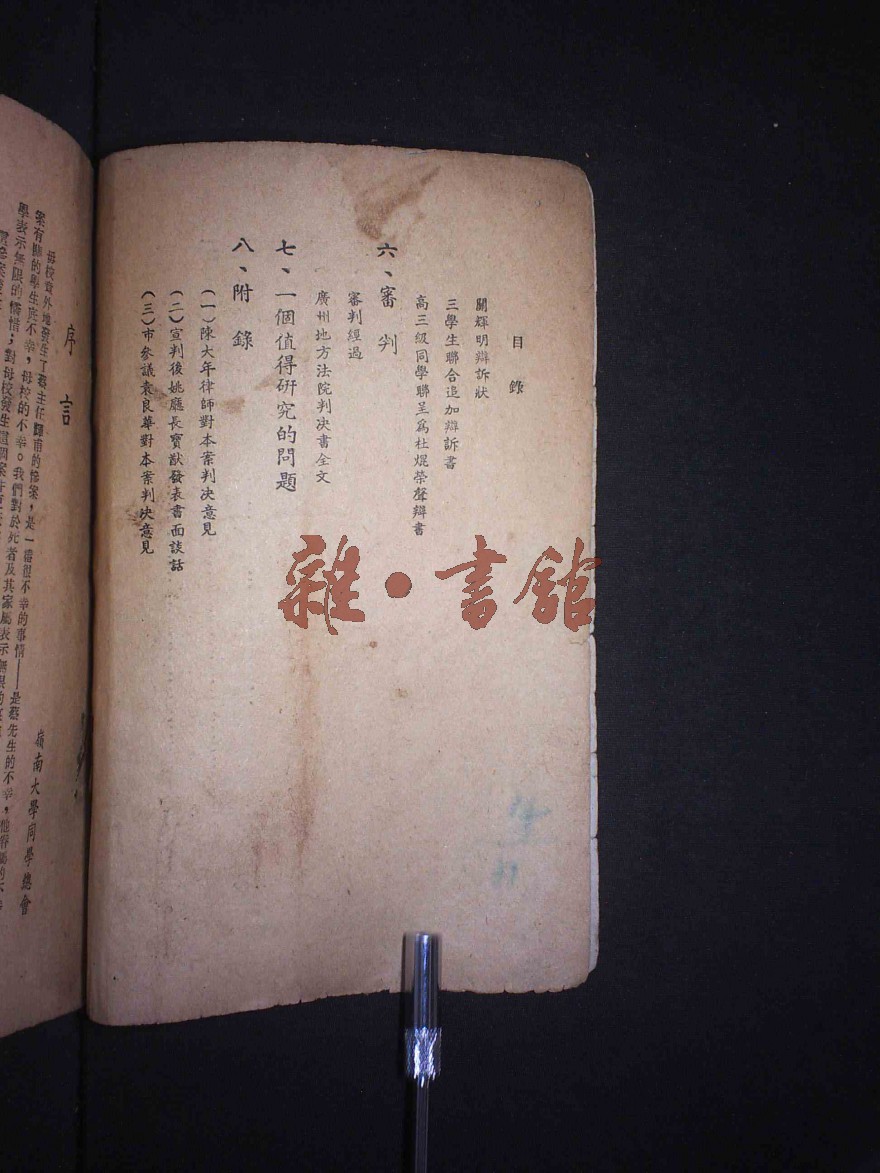 目錄
關輝明辯訴狀
三學生聯合追加辯訴書
高三級同學聯呈爲杜焜榮聲辯書
六、審判
審判經過
廣州地方法院判決書全文
七、一個值得研究的問題
八、附錄
(一)陳大年律師對本案判決意見
(二)宣判後姚應長寶猷發表書面談話
(三)市參議袁良驊對本案判決意見
序言
嶺南大學同學總會
母校意外地發生了蔡主任輝甫的慘案,是一樁很不幸的事情——是蔡先生的不幸,
案有關的學生底不幸,母校的不幸。我們對於死者及其家屬表示無
學表示無限的惋惜;對母校發生這個案件
雜·書館